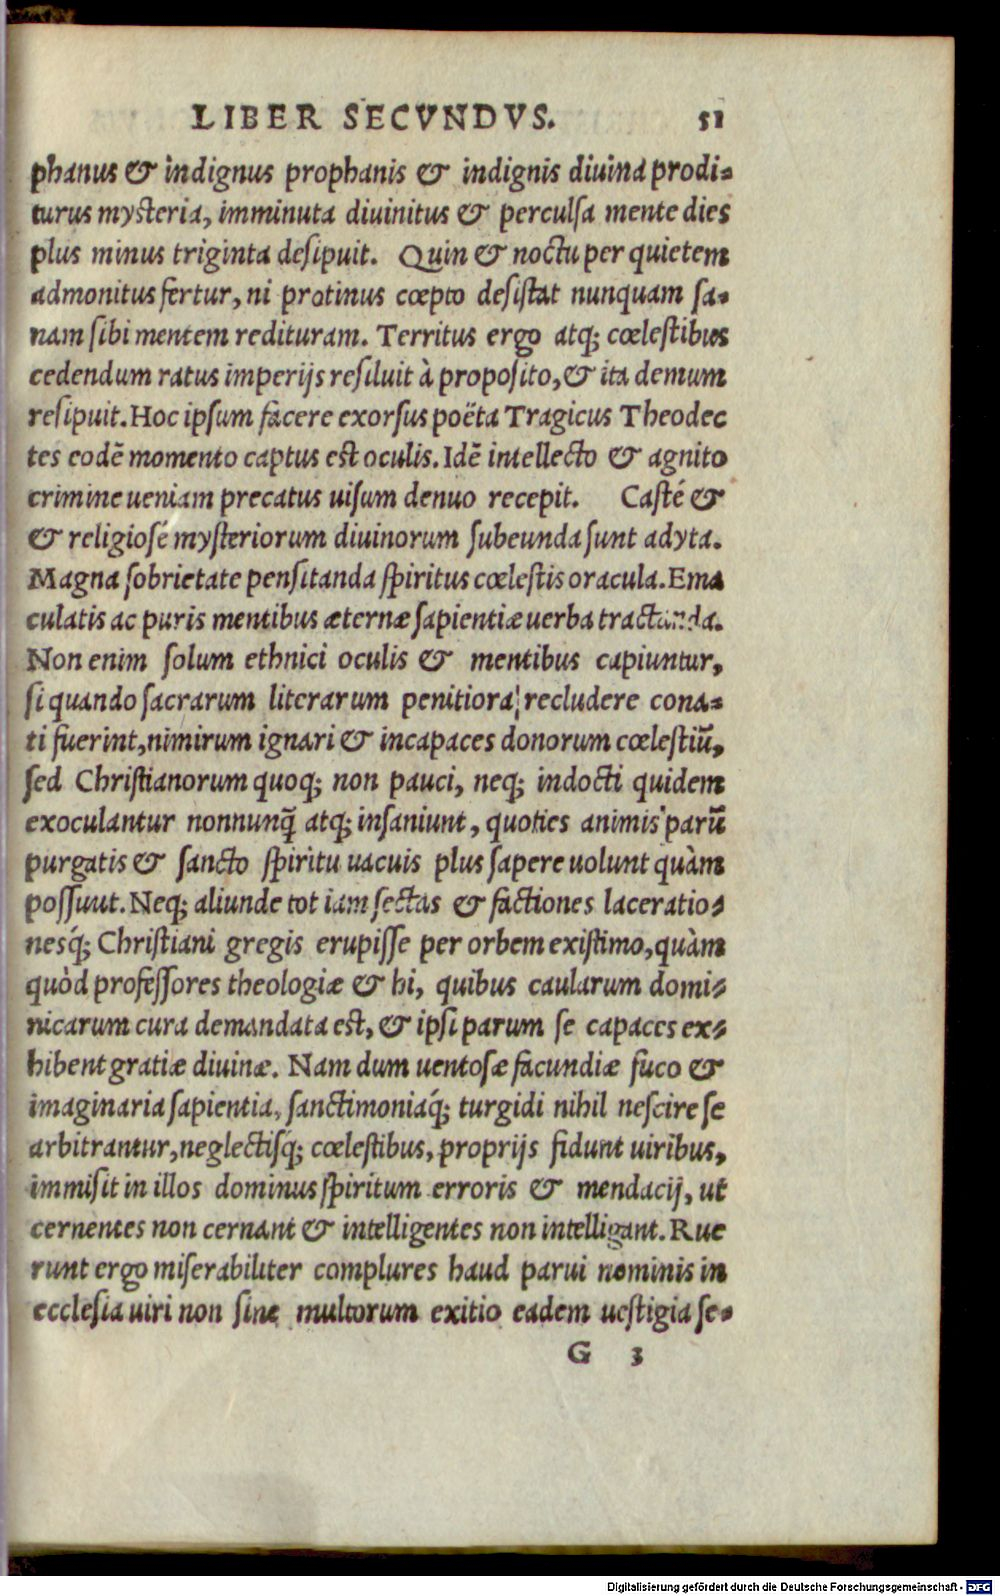 LIBER SECVNDVS. 51
phanus & indignus prophanis & indignis diuina prodi-
turus mysteria, imminuta diuinitus & perculsa mente dies
plus minus triginta desipuit. Quin & noctu per quietem
admonitus fertur, ni protinus cœpto desistat nunquam sa-
nam sibi mentem redituram. Territus ergo atq; cœlestibus
cedendum ratus imperijs resiluit à proposito, & ita demum
resipuit. Hoc ipsum facere exorsus poëta Tragicus Theodec
tes eodē momento captus est oculis. Idē intellecto & agnito
crimine ueniam precatus uisum denuo recepit. Casté &
& religiosé mysteriorum diuinorum subeunda sunt adyta.
Magna sobrietate pensitanda spiritus cœlestis oracula. Ema
culatis ac puris mentibus æternæ sapientiæ uerba tractanda.
Non enim solum ethnici oculis & mentibus capiuntur,
si quando sacrarum literarum penitiora recludere cona-
ti fuerint, nimirum ignari & incapaces donorum cœlestiū,
sed Christianorum quoq; non pauci, neq; indocti quidem
exoculantur nonnunq̃ atq; insaniunt, quoties animis parū
purgatis & sancto spiritu uacuis plus sapere uolunt quàm
possunt. Neq; aliunde tot iam sectas & factiones laceratio-
nesq́; Christiani gregis erupisse per orbem existimo, quàm
quòd professores theologiæ & hi, quibus caularum domi-
nicarum cura demandata est, & ipsi parum se capaces ex-
hibent gratiæ diuinæ. Nam dum uentosæ facundiæ fuco &
imaginaria sapientia, sanctimoniaq́; turgidi nihil nescire se
arbitrantur, neglectisq́; cœlestibus, proprijs fidunt uiribus,
immisit in illos dominus spiritum erroris & mendacij, ut
cernentes non cernant & intelligentes non intelligant. Rue
runt ergo miserabiliter complures haud parui nominis in
ecclesia uiri non sine multorum exitio eadem uestigia se-
G 3
Digitalisierung gefördert durch die Deutsche Forschungsgemeinschaft - DFG